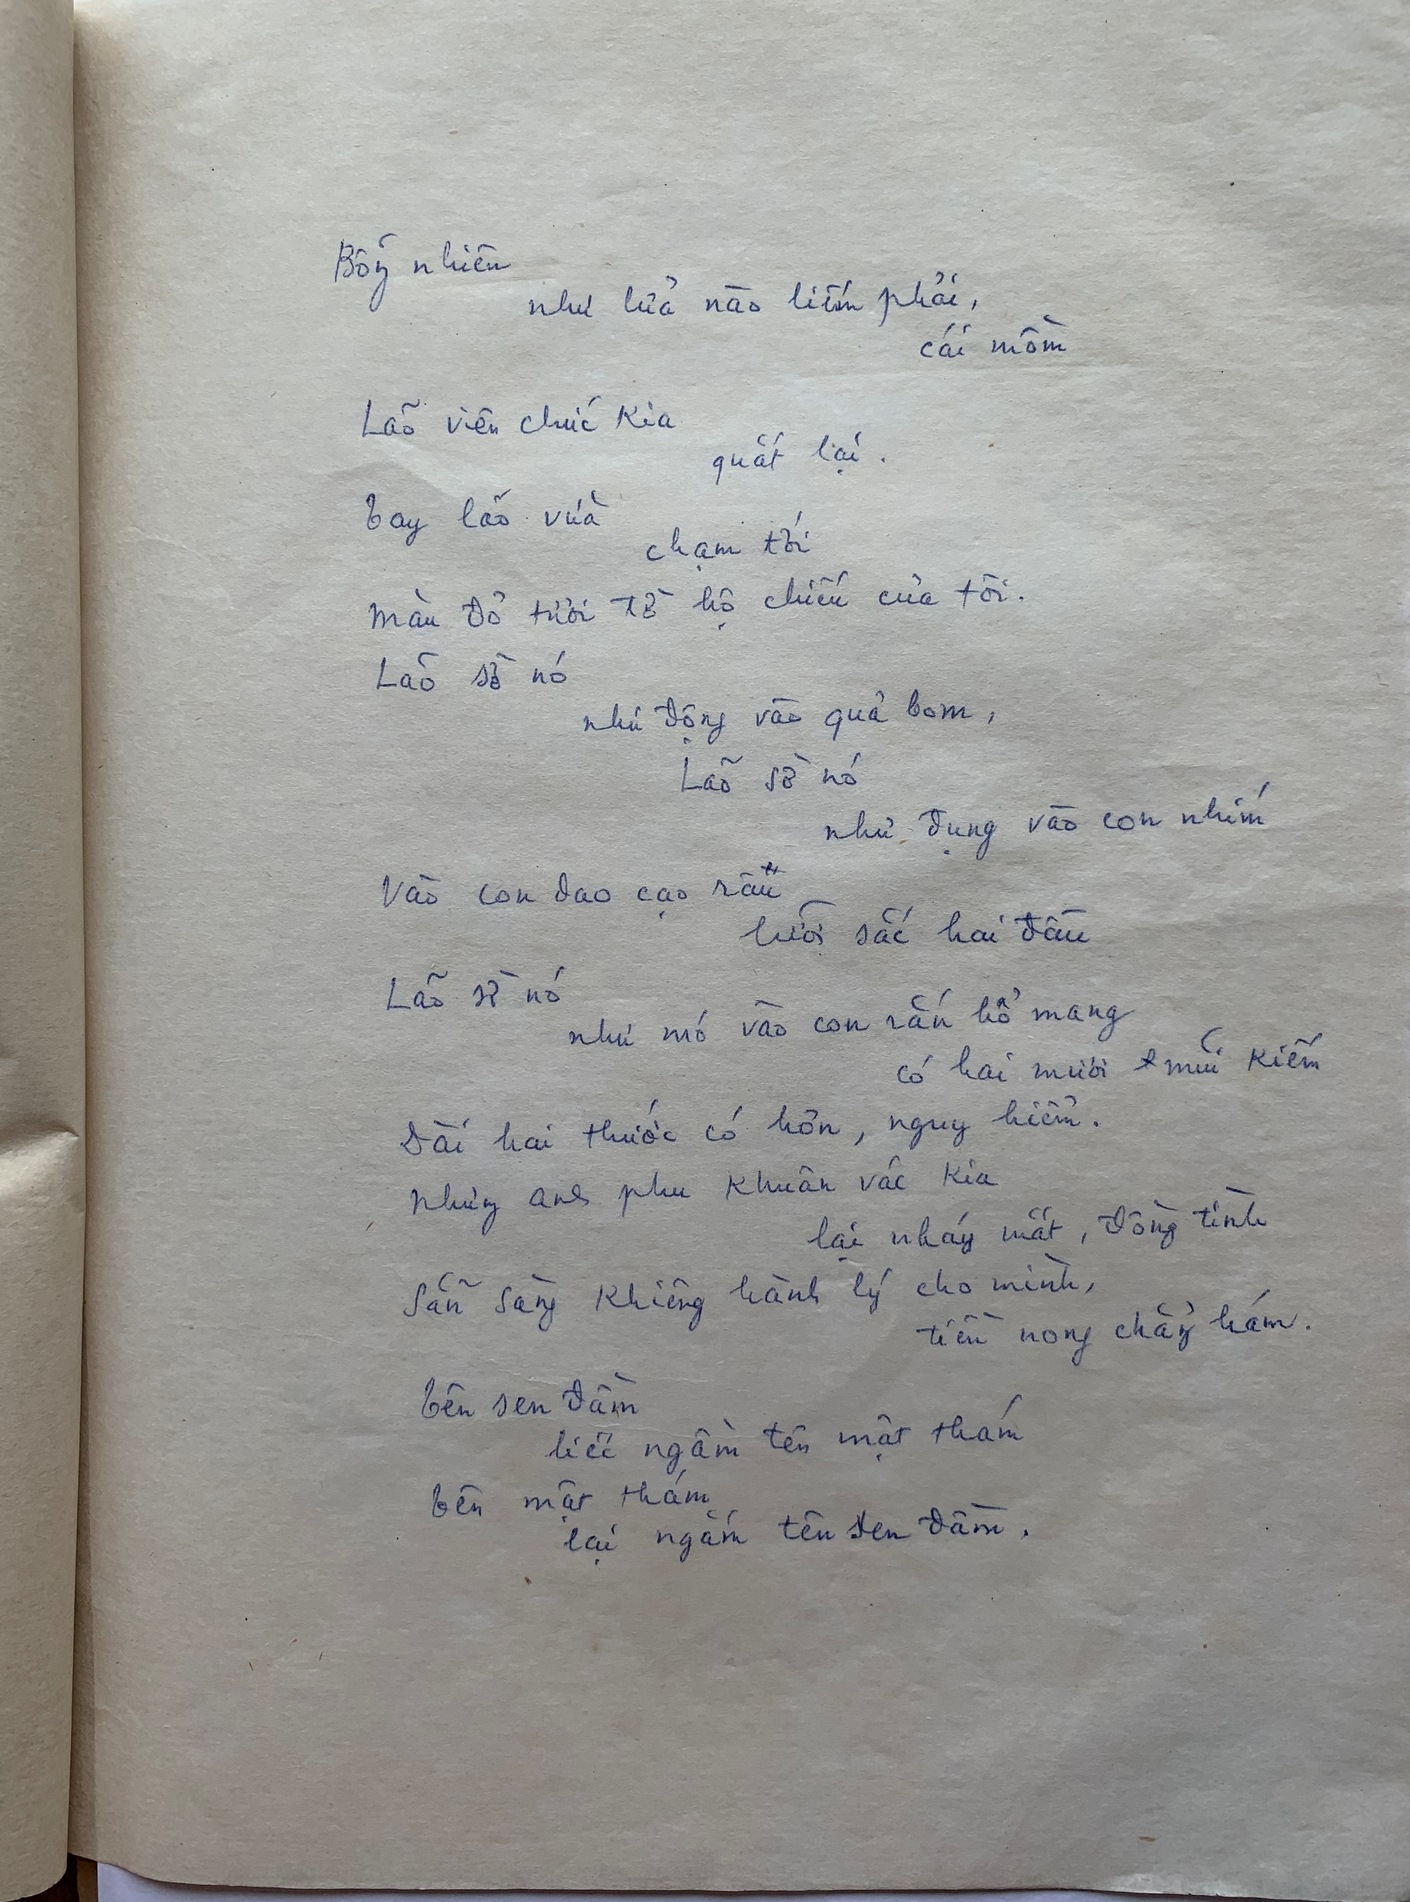 Bỗng nhiên
như lửa nào liếm phải,
cái mồm
Lão viên chức kia
quắt lại.
Tay lão vừa
chạm tới
Màu đỏ tươi tờ hộ chiếu của tôi.
Lão sờ nó
như động vào quả bom,
Lão sờ nó
như đụng vào con nhím
Vào con dao cạo râu
lưỡi sắc hai đầu
Lão sờ nó
như mó vào con rắn hổ mang
có hai mươi mũi kiếm
Dài hai thước có hơn, nguy hiểm.
Những anh phu khuân vác kia
lại nháy mắt, đồng tình
Sẵn sàng khiêng hành lý cho mình,
tiền nong chẳng hám.
Tên sen đầm
liếc ngầm tên mật thám
Tên mật thám
lại ngắm tên sen đầm.